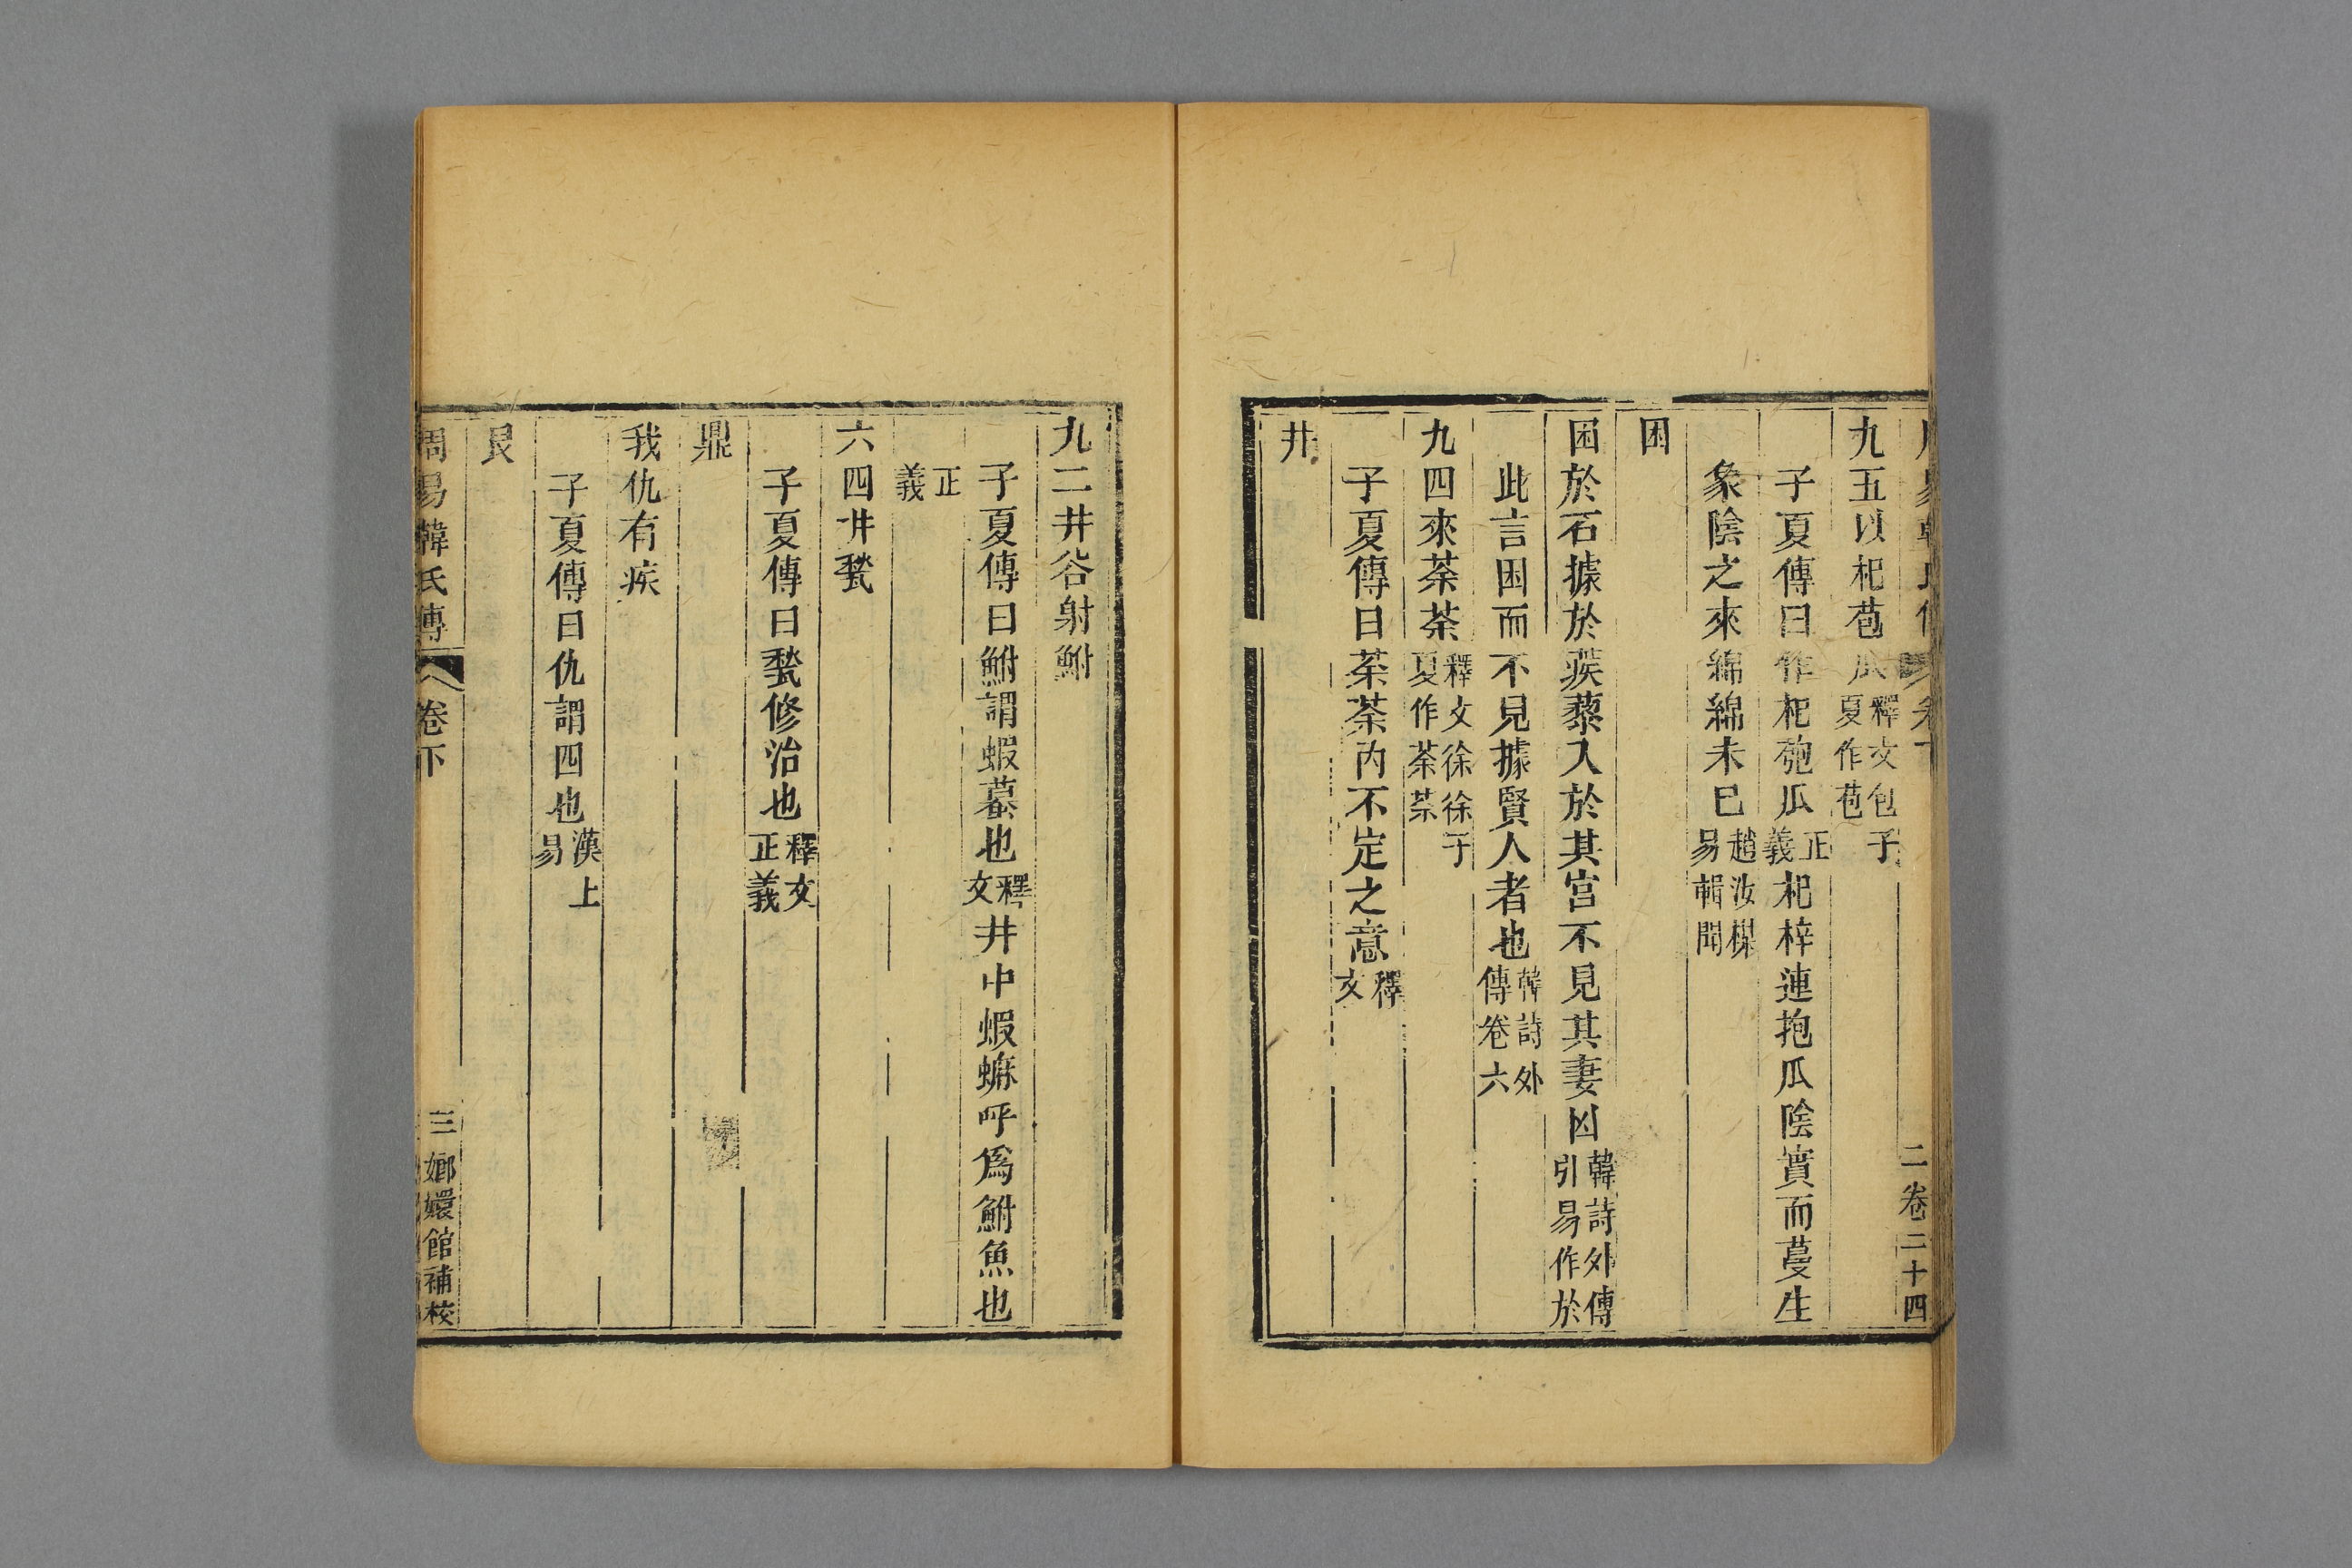 九五以杞苞瓜釋文包子夏作苞
子夏傳曰作杞匏瓜正義杞梓連抱瓜陰實而蔓生
象陰之來綿綿未已趙汝楳易輯聞
困
困於石據於蒺藜入於其宮不見其妻凶韓詩外傳引易作於
此言困而不見據賢人者也韓詩外傳卷六
九四來荼荼釋文徐徐子夏作荼荼
子夏傳曰荼荼內不定之意釋文
井
二卷二十四
九二井谷射鮒
子夏傳曰鮒謂蝦蟇也釋文井中蝦蟆呼爲鮒魚也
正義
六四井甃
子夏傳曰甃修治也釋文正義
鼎
我仇有疾
子夏傳曰仇謂四也漢上易
艮
周易韓氏傳 卷下 三 嫏嬛館補校